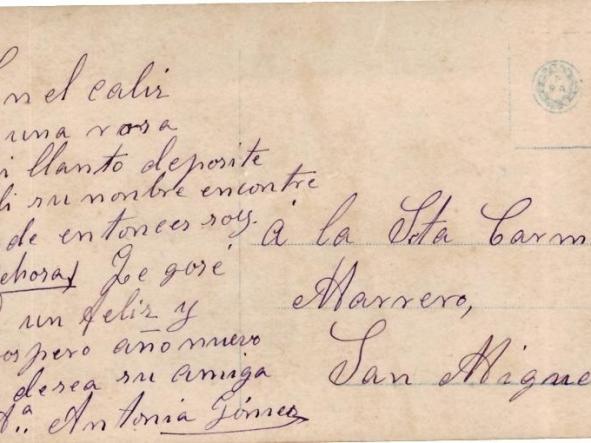 en el caliz
una rosa
i llanto deposite
li su nonbre encontre
de entonces soy.
ehora) Je gosé
un feliz y
ospero año nuevo
desea su amiga
ª Antonia Gómez
á la Sta Carm
Marrero,
San Migue